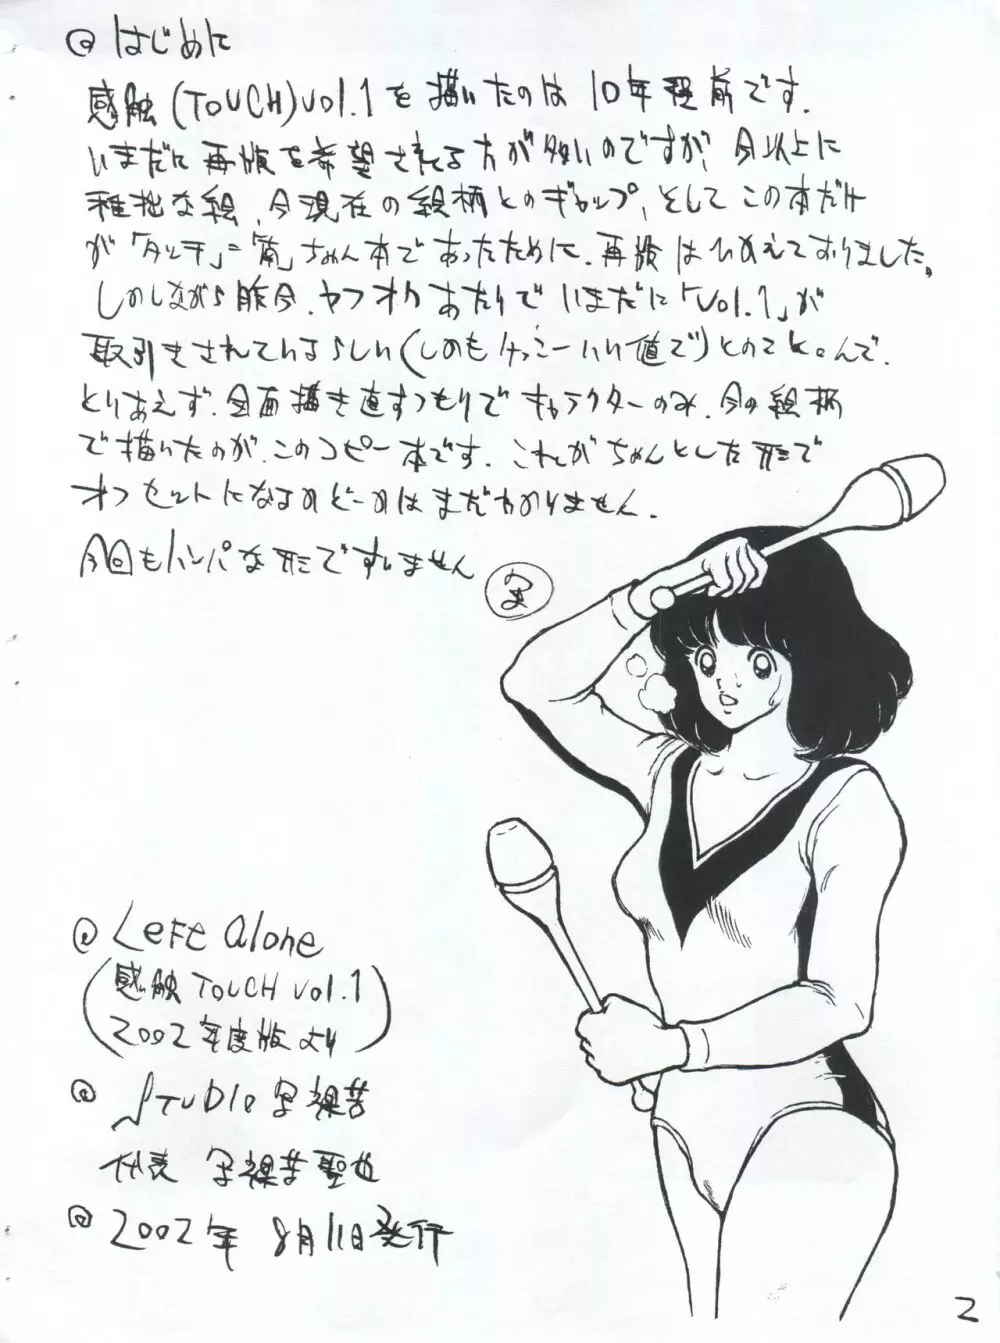 @ はじめに
感触(TOUCH)vol.1を描いたのは10年程前です.
いまだに再版を希望される方が多いのですが、今以上に
稚拙な絵、今現在の絵柄とのギャップ、そしてこの本だけ
が「タッチ」=「南」ちゃん本であったために、再版はひかえておりました。
しかしながら昨今、ヤフオクあたりでいまだに「Vol.1」が
取引きされているらしい(しかもけっこーいい値で)とのことなんで、
とりあえず、全面描き直すつもりでキャラクターのみ、今の絵柄
で描いたのが、このコピー本です. これがちゃんとした形で
オフセットになるかどーかはまだわかりません.
今回もハンパな形ですいません
@ Left alone
(感触TOUCH vol.1
2002年度版より)
@ STUDIO 写裸苦
代表 写裸苦聖也
@ 2002年 8月11日発行
2